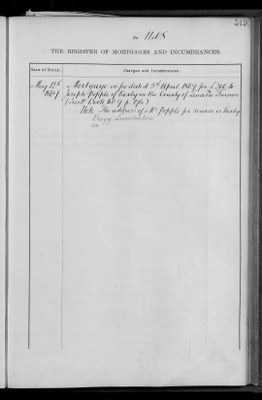 No. 1408
THE REGISTER OF MORTGAGES AND INCUMBRANCES.
Date of Entry. Charges and Incumbrances.
May 12th Mortgage in fee dated 5th April 1867 for £700 to
1867 Joseph Popple of in the County of Lincoln Farmer
Note The address of Mr Popple for service is
Brigg Lincolnshire